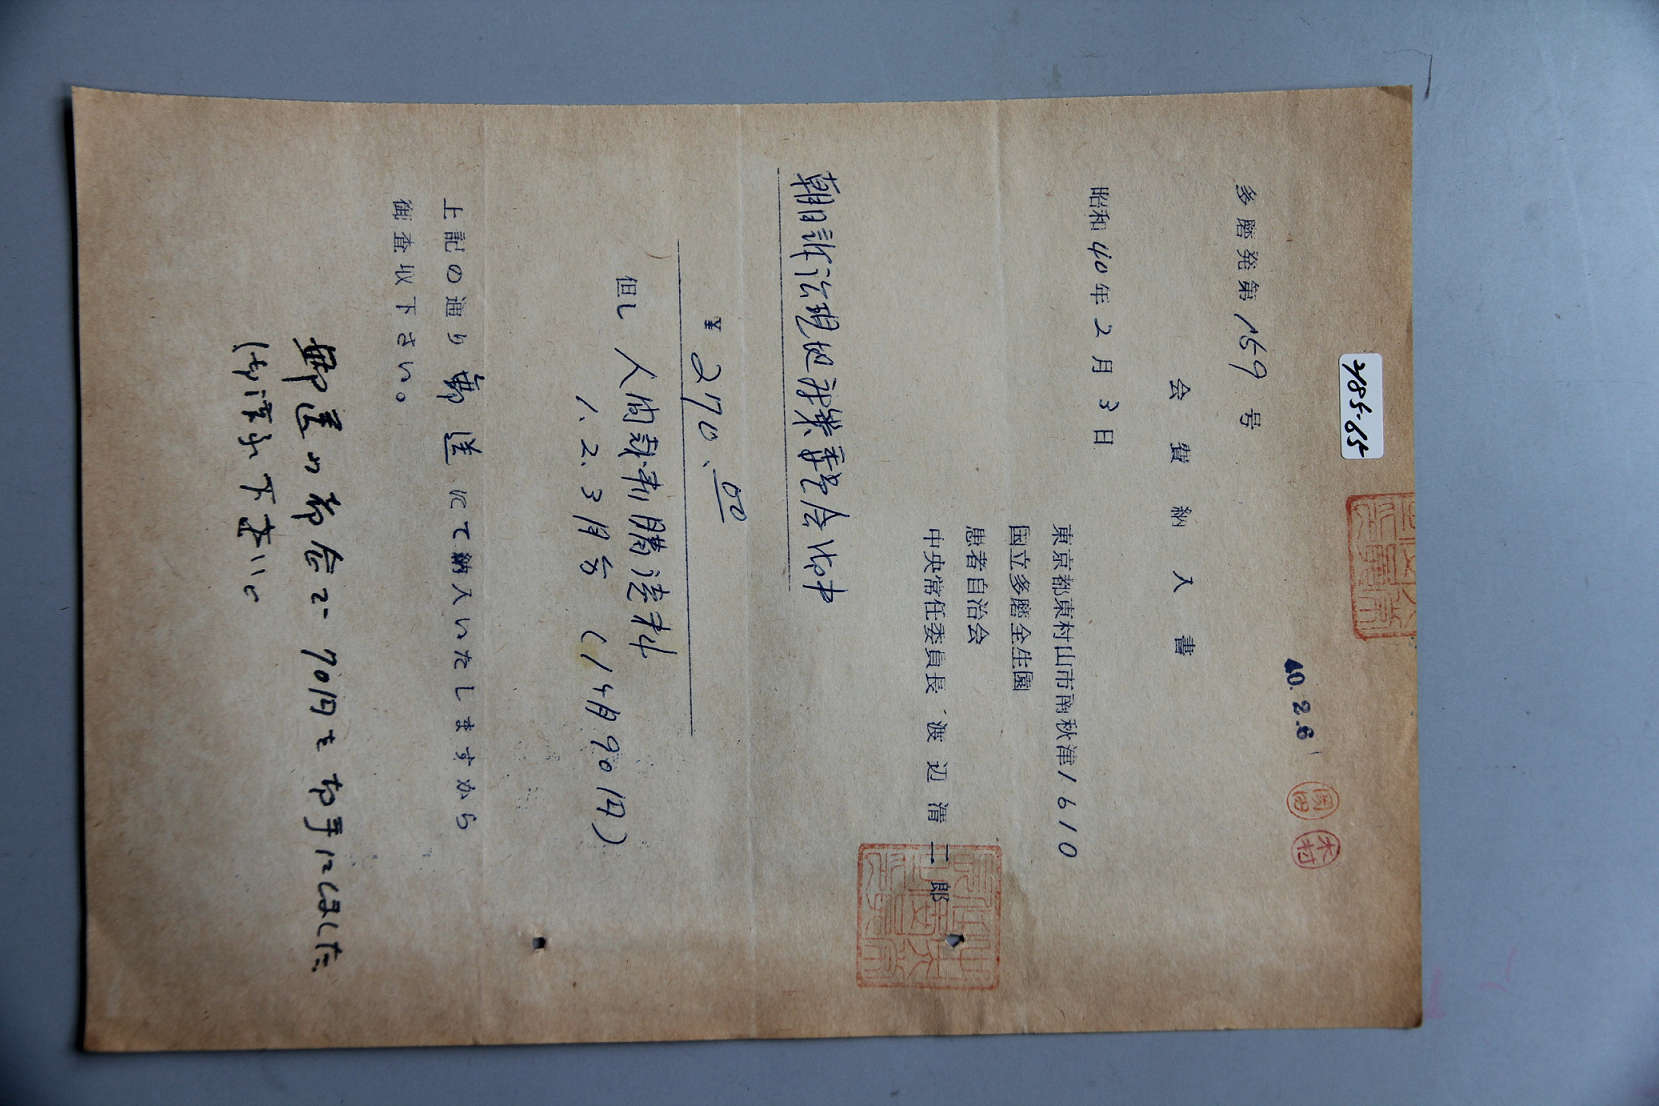 2185-65
40.2.6
岡田
木村
多磨発第159号
会費納入書
昭和40年2月3日
東京都東村山市南秋津1610
国立多磨全生園
患者自治会
中央常任委員長 渡辺清二郎
朝日訴訟現地対策委員会御中
¥270.00
但し 人間裁判購読料
1.2.3月分(1ヶ月90円)
上記の通り郵送にて納入いたしますから
御査取下さい。
郵送の都合で70円切手にしました
(御落手下さい。